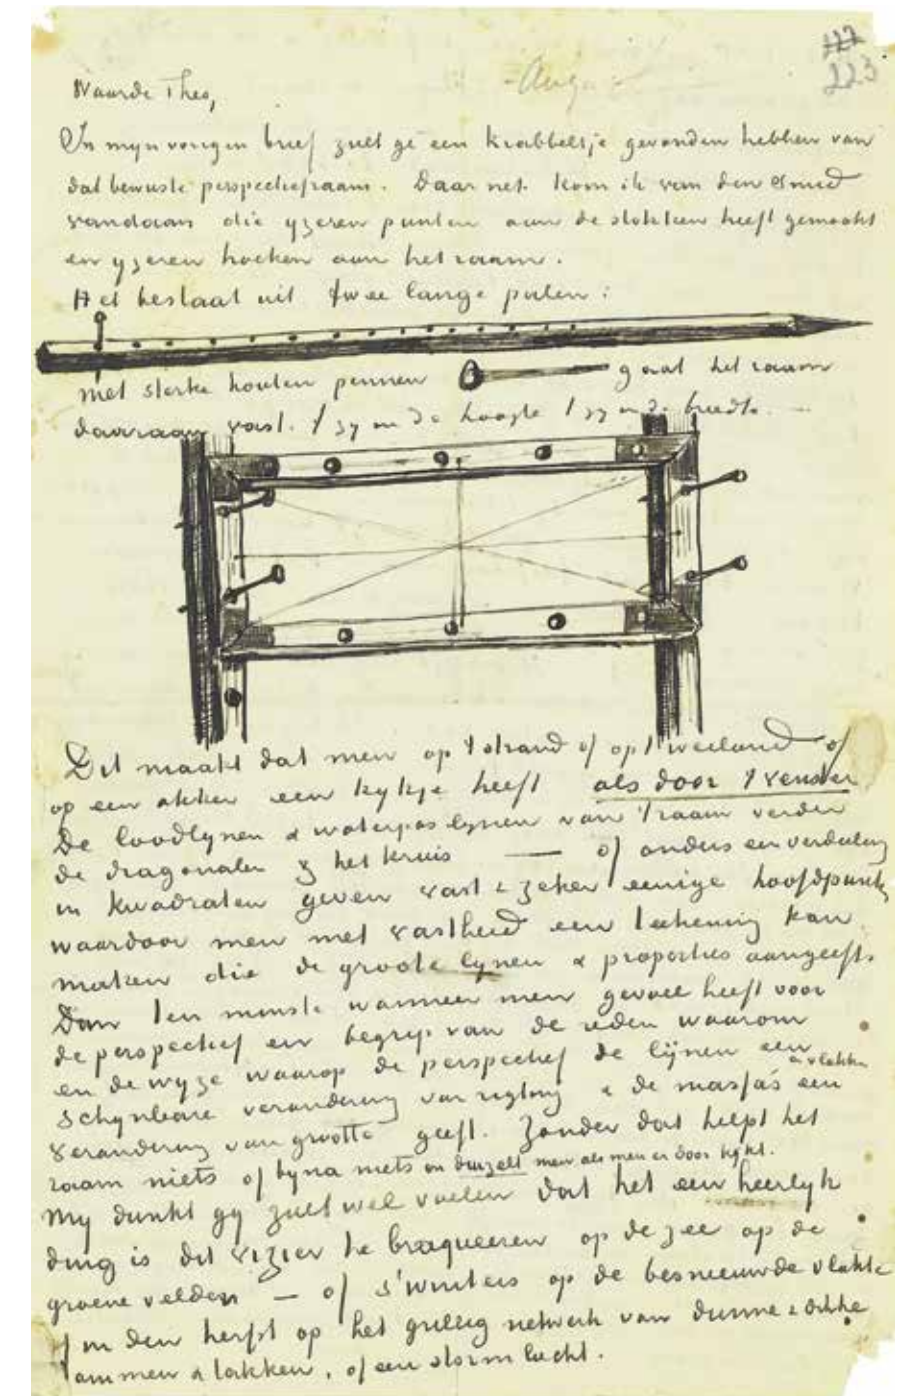 127
223
Waarde Theo,
In mijn vorigen brief zult ge een krabbeltje gevonden hebben van
dat bewuste perspectiefraam. Daar net kom ik van den smid
vandaan die ijzeren punten aan de stokken heeft gemaakt
en ijzeren hoeken aan het raam.
Het bestaat uit twee lange palen:
met sterke houten pennen gaat het raam
daaraan vast. 't zij in de hoogte 't zij in de breedte.
Dit maakt dat men op 't strand of op 't weiland of
op een akker een kijkje heeft als door 't venster
De loodlijnen & waterpaslijnen van 't raam verder
de diagonalen & het kruis — of anders een verdeeling
in kwadraten geven vast & zeker eenige hoofdpunten
waardoor men met vastheid een teekening kan
maken die de groote lijnen & proporties aangeeft.
Dan ten minste wanneer men gevoel heeft voor
de perspectief en begrip van de reden waarom
en de wijze waarop de perspectief de lijnen een
schijnbare verandering van rigting & de massa's een
& vlakken
verandering van grootte geeft. Zonder dat helpt het
raam niets of bijna niets en duizelt men als men er door kijkt.
Mij dunkt gij zult wel voelen dat het een heerlijk
ding is dit vizier te braqueeren op de zee op de
groene velden — of s'winters op de besneeuwde vlakte
of in den herfst op het grillig netwerk van dunne & dikke
tammen & takken, of een stormlucht.